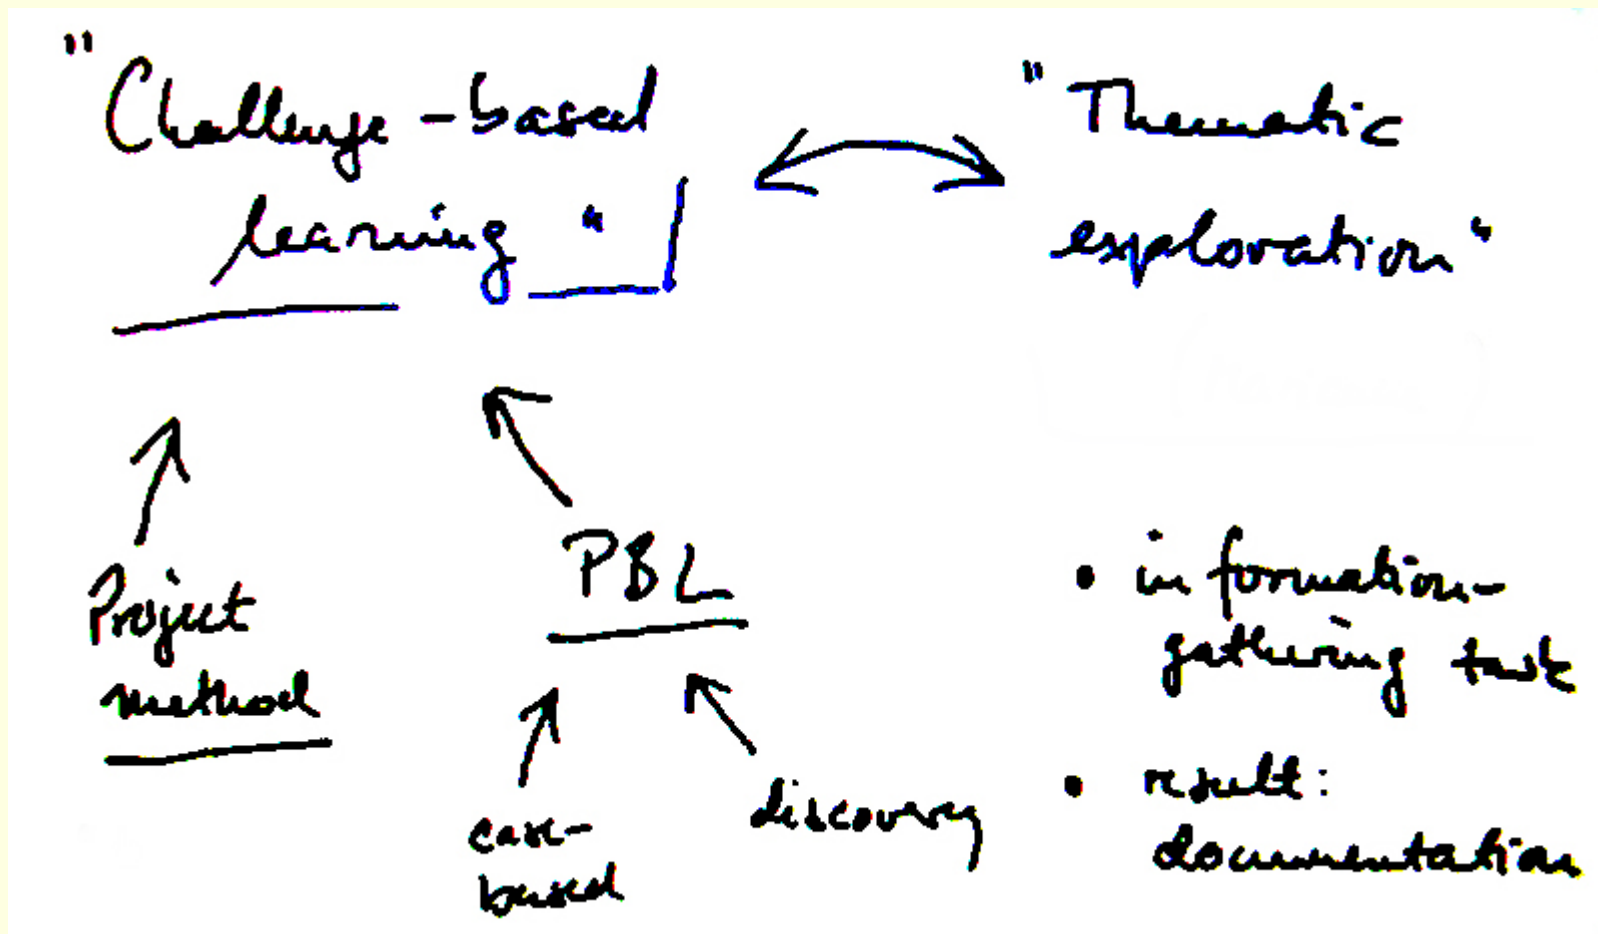 "Challenge-based
learning"
"Thematic
exploration"
Project
method
PBL
case-
based
discovery
• information-
gathering task
• result:
documentation